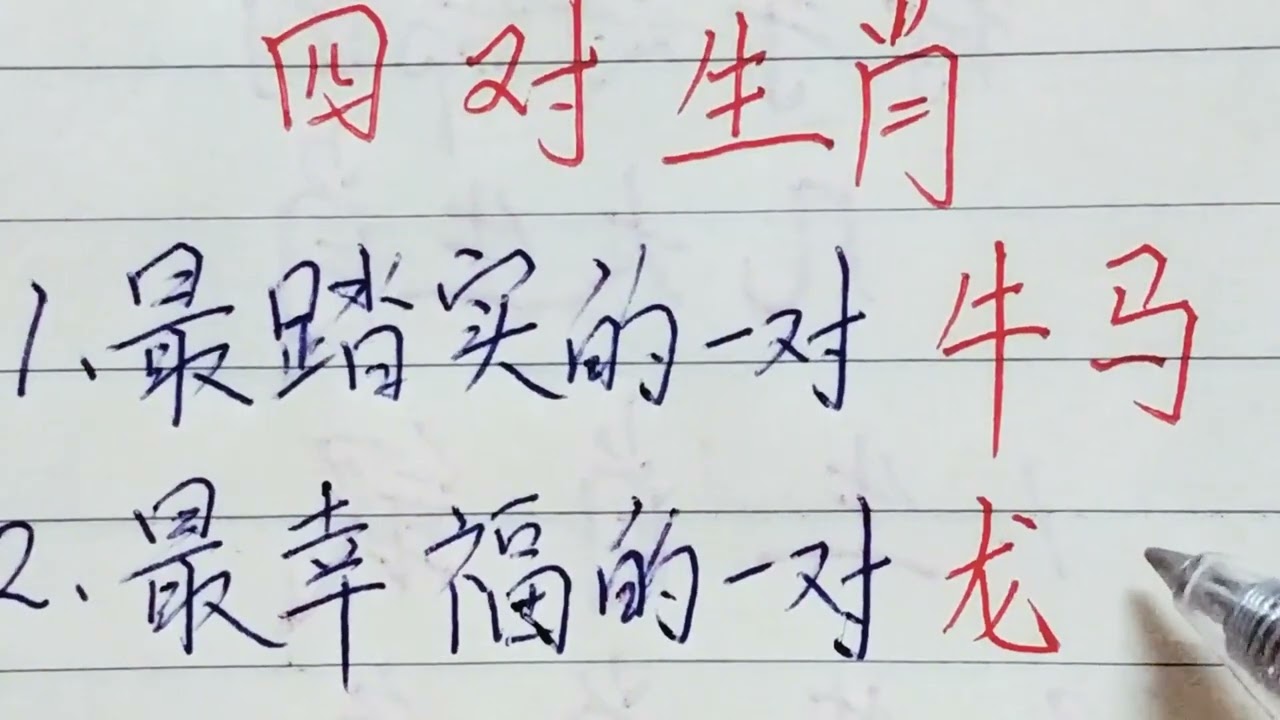 四对生肖
1、最踏实的一对 牛马
2、最幸福的一对 龙